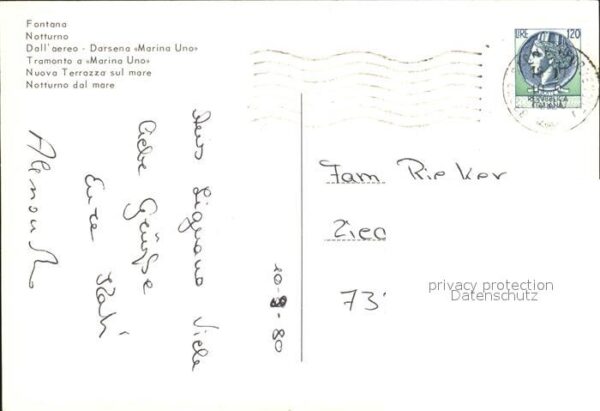 Fontana
Notturno
Dall'aereo - Darsena «Marina Uno»
Tramonto a «Marina Uno»
Nuova Terrazza sul mare
Notturno dal mare
LIRE 120
REPUBBLICA
ITALIANA
Lignano Viele
liebe Grüße
Eure Kati
20-8-80
Fam Rieker
73
privacy protection
Datenschutz